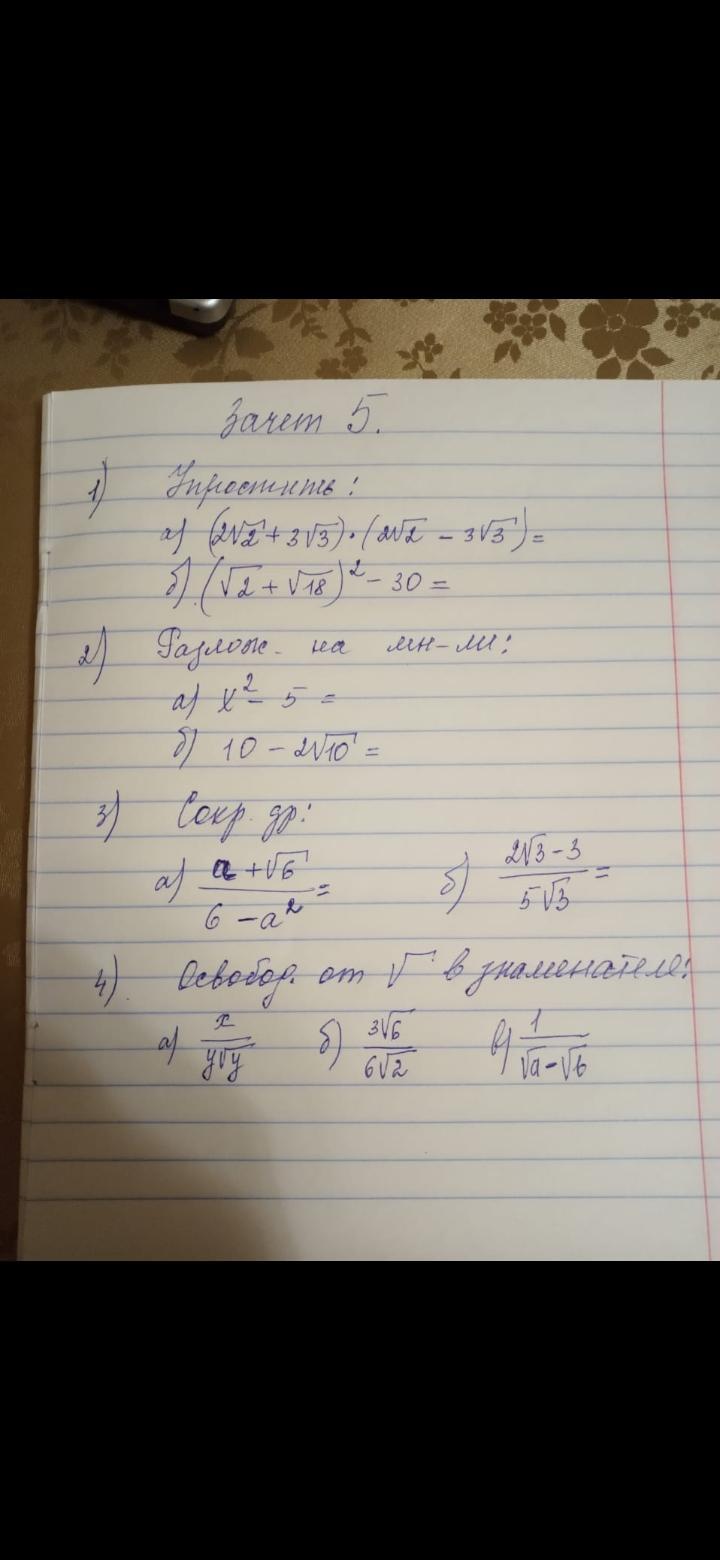 Зачет 5.
1) Упростить:
а) (2√2 + 3√3) · (2√2 − 3√3) =
б) (√2 + √18)² − 30 =
2) Разлож. на мн-ли:
а) x² − 5 =
б) 10 − 2√10 =
3) Сокр. др:
а) (a + √6)/(6 − a²) = б) (2√3 − 3)/(5√3) =
4) Освобод. от √ в знаменателе:
а) x/(y√y) б) 3√6/(6√2) в) 1/(√a − √b)